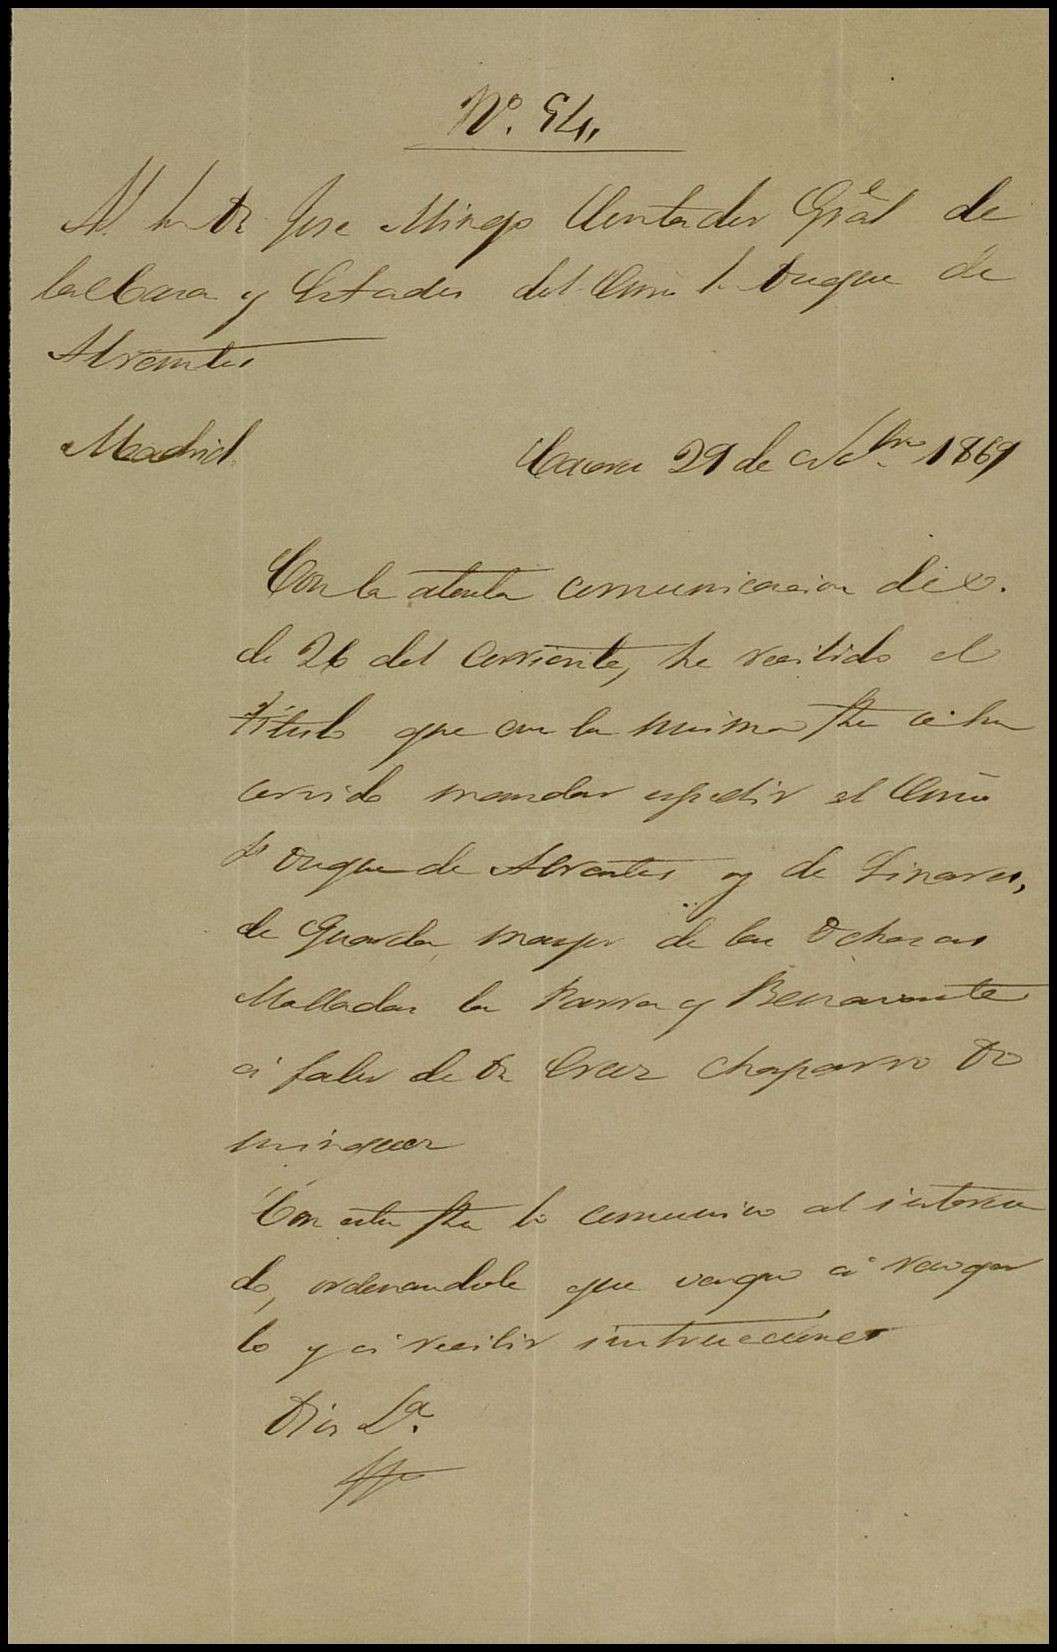 Nº. 94,,
Al Sr Dn Jose Mingo Contador Gral de
la Casa y Estados del Exmo Sr Duque de
Abrantes
Madrid
Caceres 29 de Nbre 1869
Con la atenta comunicacion de V.
de 26 del corriente, he recibido el
título que con la misma fha se ha
servido mandar espedir el Exmo
Sr Duque de Abrantes y de Linares,
de Guarda mayor de las Dehesas
Malladas la Parra y Benavente
á fabor de Dn Cruz Chaparro Do
minguez
Con esta fha lo comunico al interesa
do, ordenandole que venga á recoger
lo y á recibir instrucciones
Dios Gª.